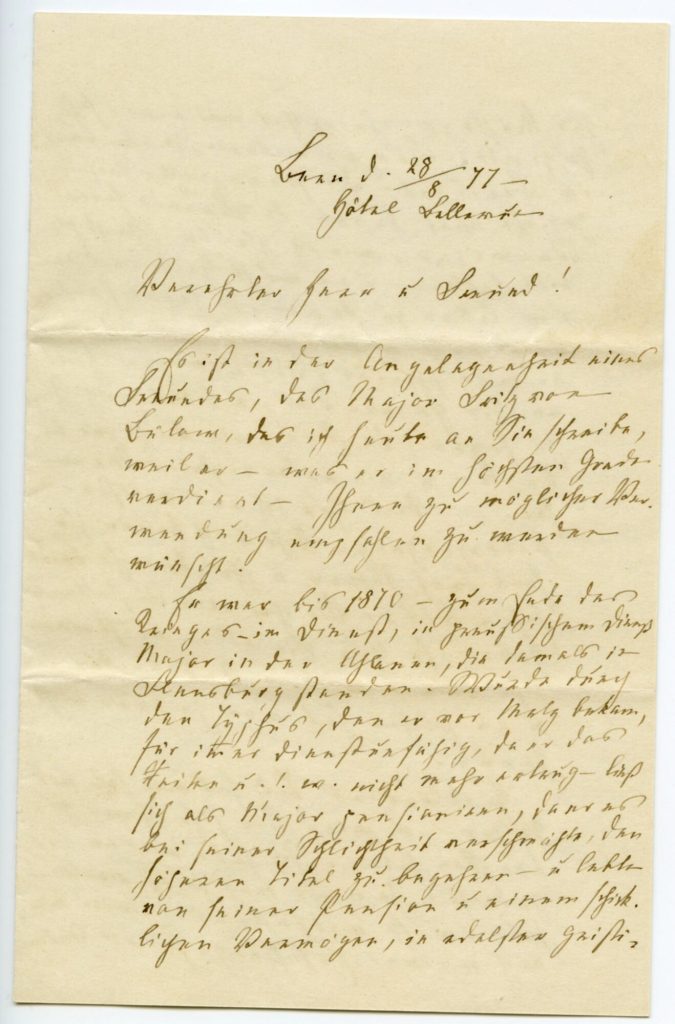 Bern d. 28/8 77 –
Hôtel Bellevue
Verehrter Herr u Freund!
Es ist in der Angelegenheit eines
Freundes, des Major Fritz von
Bülow, das ich heute an Sie schreibe,
weil er – was er im höchsten Grade
verdient – Ihnen zu möglicher Ver-
wendung empfohlen zu werden
wünscht.
Er war bis 1870 – zum Ende des
Krieges – im Dienst, in preußischem Dienst
Major in der Uhlanen, die damals in
Flensburg standen. Wurde durch
den Typhus, den er vor Metz bekam,
für immer dienstunfähig, da er das
Reiten u. s. w. nicht mehr ertrug – ließ
sich als Major pensioniren, da er es
bei seiner Schlichtheit verschmähte, den
höheren Titel zu begehren – u lebte
von seiner Pension u einem schick-
lichen Vermögen, in edelster geisti-